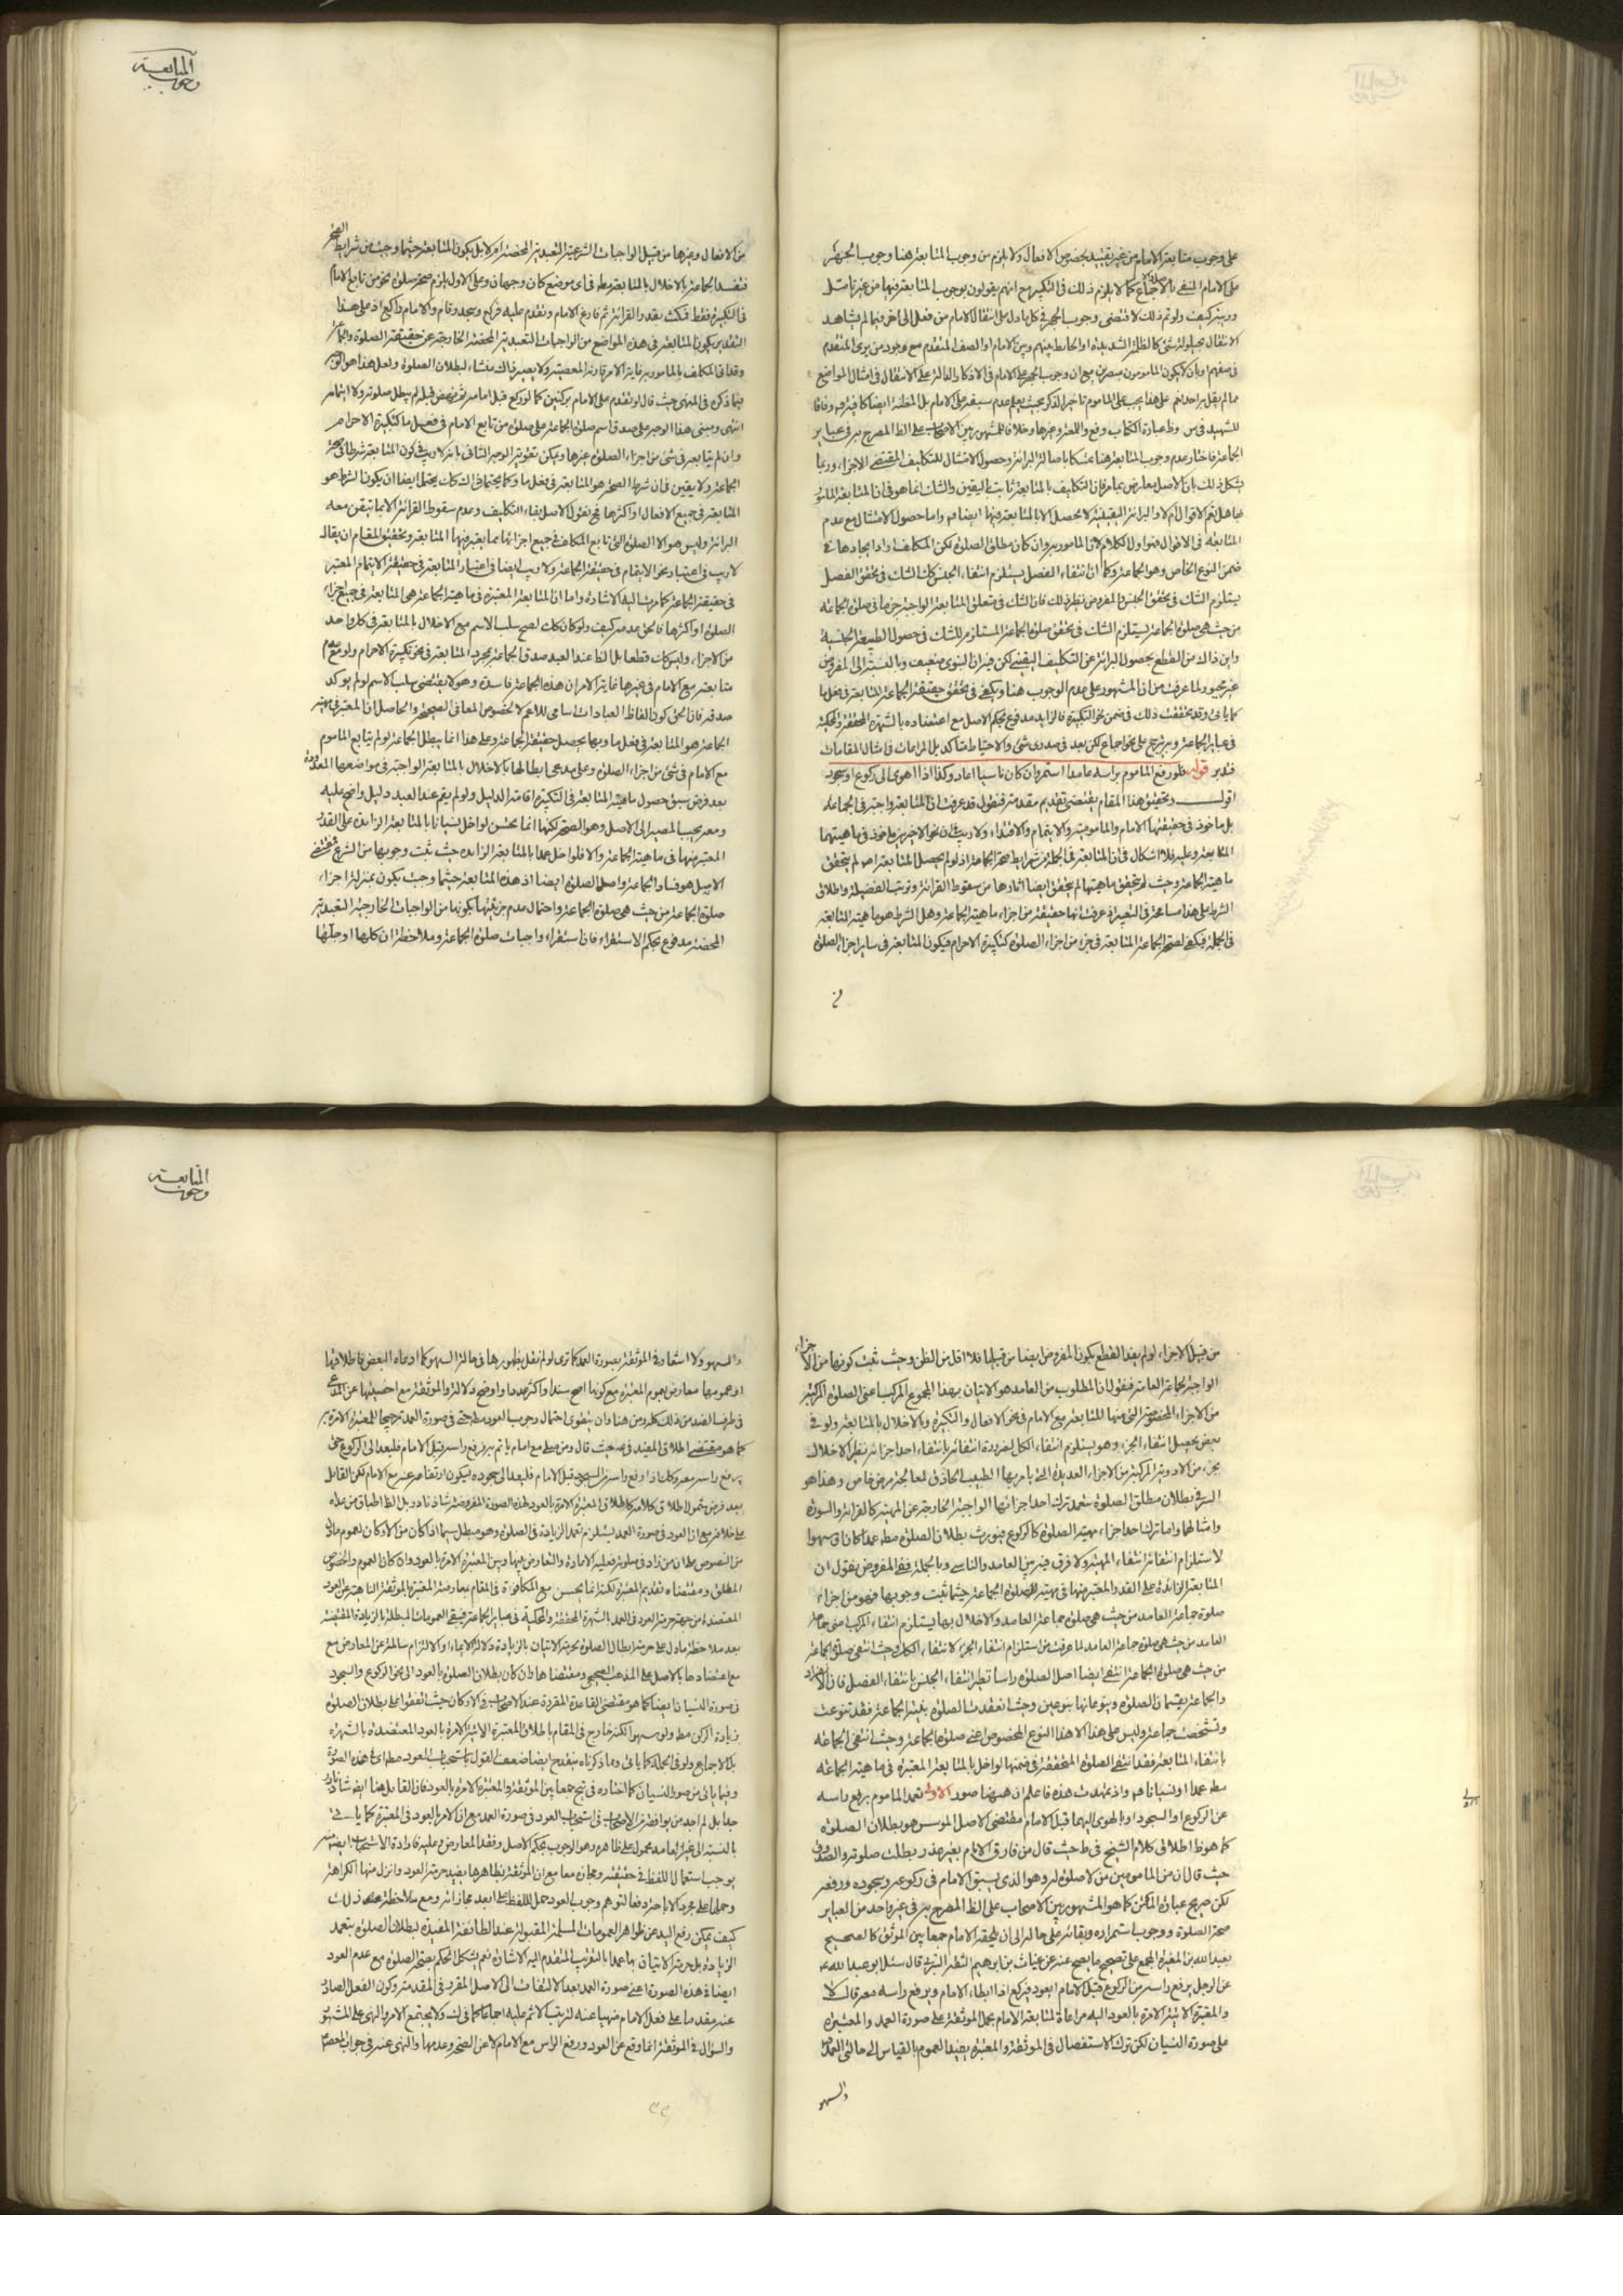 المتابعة
وجوب
على وجوب متابعة الامام من غير تقييد بخصوص الافعال ولا يلزم من وجوب المتابعة هنا وجوب الجهر
على الامام المنفي بالاجماع كما لا يلزم ذلك في التكبير مع انهم يقولون بوجوب المتابعة فيها من غير تامل
وريبة كيف ولو تم ذلك لاقتضى وجوب الجهر في كل ما يدل على انتقال الامام من فعل الى اخر فيما لم يشاهد
الانتقال بحيلولة شئ كالظلمة الشديدة او الحايط بينهم وبين الامام او الصف المتقدم مع وجود من يرى المتقدم
مما لم يقل به احد نعم على هذا يجب على الماموم تاخير الذكر بحيث يعلم عدم سبقه على الامام بل المظنة ايضا كافية وفاقا
الجماعة فاختار عدم وجوب المتابعة هنا تمسكا باصالة البرائة وحصول الامتثال للتكاليف المقتضي الاجزاء وربما
يشكل ذلك بان الاصل معارض بمثله فان التكاليف بالمتابعة ثابت باليقين والشك انما هو في ان المتابعة المامور
بها هل تعم الاقوال ام لا والبرائة اليقينية لا يحصل الا بالمتابعة فيها ايضا واما حصول الامتثال مع عدم
المتابعة في الاقوال فهو اول الكلام لان المامور به وان كان مطلق الصلوة لكن المكلف اراد ايجادها في
ضمن النوع الخاص وهو الجماعة وكما ان انتفاء الفصل يستلزم انتفاء الجنس كذلك الشك في تحقق الفصل
يستلزم الشك في تحقق الجنس والمفروض نظير ذلك فان الشك في تعلق المتابعة الواجبة جزما في صلوة الجماعة
من حيث هي صلوة الجماعة يستلزم الشك في تحقق صلوة الجماعة المستلزم للشك في حصول الطبيعة الجنسية
واين ذاك من القطع بحصول البرائة عن التكليف اليقيني لكن فيه ان النبوي ضعيف وبالنسبة الى المفروض
غير مجبور لما عرفت من ان المشهور على عدم الوجوب هنا ويكفي في تحقق حقيقة الجماعة المتابعة في فعل ما
كما ياتي وقد تحققت ذلك في ضمن نحو التكبيرة فالزايد مدفوع بحكم الاصل مع اعتضاده بالشهرة المحققة والمحكية
في عباير الجماعة وبه يترجح على نحو اجماع لكن بعد في صدري شئ والاحتياط متاكد بل المراعات في امثال المقامات
فتدبر قوله فلو رفع الماموم راسه عامدا استمر وان كان ناسيا اعاد وكذا اذا اهوى الى ركوع او سجود
اقول وتحقيق هذا المقام يقتضي تقديم مقدمة فنقول قد عرفت ان المتابعة واجبة في الجماعة
بل ماخوذ في حقيقتها الامام والمامومية والايتمام والاقتداء ولا ريب في ان نحو الاخرين ماخوذ في ماهيتهما
المتابعة وعليه فلا اشكال في ان المتابعة في الجملة من شرايط صحة الجماعة اذ لو لم يحصل المتابعة اصلا لم يتحقق
ماهية الجماعة وحيث لم تتحقق ماهيتها لم يتحقق ايضا اثارها من سقوط القرائة وترتب الفضيلة واطلاق
الشرط على هذا مسامحة في التعبير اذ عرفت انها حقيقة من اجزاء ماهية الجماعة وهل الشرط هو ماهية المتابعة
في الجملة فيكفي لصحة الجماعة المتابعة في جزء من اجزاء الصلوة كتكبيرة الاحرام فيكون المتابعة في ساير اجزاء الصلوة
من الافعال وغيرها من قبيل الواجبات الشرعية التعبدية المحضة ام لا بل يكون المتابعة حيثما وجبت من شرايط الصحة
فتفسد الجماعة بالاخلال بالمتابعة مطلقا في اي موضع كان وجهان وعلى الاول يلزم صحة صلوة نحو من تابع الامام
في التكبيرة فقط فمكث بقدر القرائة ثم فارغ الامام وتقدم عليه فركع وسجد وقام والامام راكع اذ على هذا
التقدير يكون المتابعة في هذه المواضع من الواجبات التعبدية المحضة الخارجة عن حقيقة الصلوة والجماعة
فيما ذكره في المنتهى حيث قال لو تقدم على الامام بركنين كما لو ركع قبل امامه
انتهى ومبنى هذا الوجه على صدق اسم صلوة الجماعة على صلوة من تابع الامام في فعل ما كتكبيرة الاحرام
وان لم يتابعه في شئ من اجزاء الصلوة غيرها ويمكن تقوية الوجه الثاني بانه لا ريب في كون المتابعة شرطا في صحة
الجماعة ولا يقين في ان شرط الصحة هو المتابعة في فعل ما
المتابعة في جميع الافعال او اكثرها فح نقول الاصل بقاء التكليف وعدم سقوط القرائة الا بما تيقن معه
البرائة وليس هو الا الصلوة التي تابع المكلف في جميع اجزائها مما يعتبر فيها المتابعة وتحقيق المقام ان يقال
لا ريب في اعتبار نحو الايتمام في حقيقة الجماعة ولا ريب ايضا في اعتبار المتابعة في حقيقة الايتمام المعتبر
في حقيقة الجماعة كما مرت اليه الاشارة واما ان المتابعة المعتبرة في ماهية الجماعة هي المتابعة في جميع اجزاء
الصلوة او اكثرها فالحق عدمه كيف ولو كان كك لصح سلب الاسم مع الاخلال بالمتابعة في كل واحد
من الاجزاء وليس كك قطعا بل الظ عند العبد صدق الجماعة بمجرد المتابعة في نحو تكبيرة الاحرام ولو مع عدم
متابعته مع الامام في غيرها غاية الامر ان هذه الجماعة فاسدة وهو لا يقتضي سلب الاسم لو لم يوكد
صدقه فان الحق كون الفاظ العبادات اسامي للاعم لا لخصوص المعاني الصحيحة والحاصل ان المعتبر في مهية
الجماعة هو المتابعة في فعل ما وبها يحصل حقيقة الجماعة وعلى هذا انما يبطل الجماعة لو لم يتابع الماموم
مع الامام في شئ من اجزاء الصلوة وعلى مدعي ابطالها بالاخلال بالمتابعة الواجبة في مواضعها المعدودة
بعد فرض سبق حصول ماهية المتابعة في التكبيرة اقامة الدليل ولو لم يقم عند العبد دليل واضح عليه
ومعه يجب المصير الى الاصل وهو الصحة لكنها انما يحسن لو اخل نسيانا بالمتابعة الزائدة على القدر
المعتبر منها في ماهية الجماعة والا فلو اخل عمدا بالمتابعة الزايدة حيث ثبت وجوبها من الشرع فمقتضى
الاصل هو فساد الجماعة واصل الصلوة ايضا اذ هذه المتابعة حيثما وجبت يكون بمنزلة اجزاء
صلوة الجماعة من حيث هي صلوة الجماعة واحتمال عدم جزئيتها بكونها من الواجبات الخارجية التعبدية
المحضة مدفوع بحكم الاستقراء فان استقراء واجبات صلوة الجماعة وملاحظة ان كلها او جلها
المتابعة
وجوب
من قبيل الاجزاء لو لم يفد القطع بكون المفروض ايضا من قبيلها فلا اقل من الظن وحيث ثبت كونها من الاجزاء
الواجبة لجماعة العامد فنقول ان المطلوب من العامد هو الاتيان بهذا المجموع المركب اعني الصلوة المركبة
من الاجزاء المخصوصة التي منها المتابعة مع الامام في نحو الافعال والتكبيرة وبالاخلال بالمتابعة ولو في
بعض يحصل انتفاء الجزء وهو يستلزم انتفاء الكل لضرورة انتفائه بانتفاء احد اجزائه نظير الاخلال
بجزء من الادوية المركبة من الاجزاء العديدة التي يامر بها الطبيب الحاذق لمعالجة مرض خاص وهذا هو
السر في بطلان مطلق الصلوة بتعمد ترك احد اجزائها الواجبة الخارجة عن المهية كالقرائة والسورة
وامثالها واما ترك احد اجزاء مهية الصلوة كالركوع فيورث بطلان الصلوة مطلقا عمدا كان او سهوا
لاستلزام انتفائه انتفاء المهية ولا فرق فيه بين العامد والناسي وبالجملة ففي المفروض نقول ان
المتابعة الزائدة على القدر المعتبر منها في مهية صلوة الجماعة حيثما ثبت وجوبها فهو من اجزاء
صلوة جماعة العامد من حيث هي صلوة جماعة العامد والاخلال بها يستلزم انتفاء المركب
العامد من حيث هي صلوة جماعة العامد لما عرفت من استلزام انتفاء الجزء لانتفاء الكل وحيث انتفى صلوة الجماعة
من حيث هي صلوة الجماعة انتفى ايضا اصل الصلوة راسا نظير انتفاء الجنس بانتفاء الفصل فان الانفراد
والجماعة يقسمان الصلوة وينوعانها بنوعين وحيث انعقدت الصلوة بنية الجماعة فقد تنوعت
وتشخصت جماعة وليس على هذا الا هذا النوع المخصوص اعني صلوة الجماعة وحيث انتفى الجماعة
بانتفاء المتابعة فقد انتفى الصلوة المتحققة في ضمنها لو اخل بالمتابعة المعتبرة في ماهية الجماعة
مطلقا عمدا او نسيانا واذ تمهدت هذه فاعلم ان ههنا صور الاولى تعمد الماموم برفع راسه
عن الركوع او السجود او بالهوي اليهما قبل الامام مقتضى الاصل الموسس هو بطلان الصلوة
كما هو ظ اطلاق كلام الشيخ في ط حيث قال من فارق الامام بغير عذر بطلت صلوته والصدوق
حيث قال ان من المامومين من لا صلوة له وهو الذي يسبق الامام في ركوعه وسجوده ورفعه
لكن صريح عبارة المتن كما هو المشهور بين الاصحاب على الظ المصرح به في غير واحد من العباير
صحة الصلوة ووجوب استمراره وبقائه على حاله الى ان يلحقه الامام جمعا بين الموثق كالصحيح
بعبد الله بن المغيرة المجمع على تصحيح ما يصح عنه عن غياث بن ابرهيم قال سئل ابو عبد الله ع
عن الرجل يرفع راسه من الركوع قبل الامام ايعود فيركع اذا ابطاء الامام ويرفع راسه معه قال لا
والمعتبرة الاتية الامرة بالعود اليه مراعاة لمتابعة الامام بحمل الموثقة على صورة العمد والمعتبرة
على صورة النسيان لكن ترك الاستفصال في الموثقة والمعتبرة يفيد العموم بالقياس الى حالتي العمد
والسهو
والسهو ولا اشعار في الموثقة بصورة العمد كما ترى لو لم نقل بظهورها في حالة السهو كما ادعاه البعض فاطلاقها
او عمومها معارض بعموم المعتبرة مع كونها اصح سندا واكثر عددا واوضح دلالة والموثقة مع اخصيتها عن المدعى
في طرف الضد من ذلك كله ومن هنا وان يتقوى احتمال وجوب العود مطلقا حتى في صورة العمد ترجيحا للمعتبرة الامرة به
كما هو مقتضى اطلاق المفيد في عه حيث قال ومن صلى مع امام ياتم به فرفع راسه قبل الامام فليعد الى الركوع حتى
يرفع راسه معه وكذا اذا رفع راسه من السجود قبل الامام فليعد الى سجوده ليكون ارتفاعه عنه مع الامام لكن القائل
بعد فرض شمول اطلاق كلامه كاطلاق المعتبرة الامرة بالعود لهذه الصورة المفروضة شاذ نادر بل الظ اطباق من عداه
على خلافه مع ان العود في صورة العمد يستلزم تعمد الزيادة في الصلوة وهو مبطل سيما اذا كان من الاركان لعموم ما دل
من النصوص على ان من زاد في صلوته فعليه الاعادة والتعارض بينها وبين المعتبرة الامرة بالعود وان كان العموم والخصوص
المطلق ومقتضاه تقديم المعتبرة لكنه انما يحسن مع المكافؤة في المقام بمعارضة المعتبرة بالموثقة الناهية عن العود
المعتضدة من جهة حرمة العود في العمد بالشهرة المحققة والمحكية في عباير الجماعة فيبقى العمومات المبطلة بالزيادة المقتضية
بعد ملاحظة ما دل على حرمة ابطال الصلوة لحرمة الاتيان بالزيادة دلالة الايماء والالتزام سالمة عن المعارض مع
مع اعتضادها بالاصل على المذهب الصحيح ومقتضاها وان كان بطلان الصلوة بالعود الى نحو الركوع والسجود
في صورة النسيان ايضا كما هو مقتضى القاعدة المقررة عند الاصحاب في الاركان حيث اتفقوا على بطلان الصلوة
بزيادة الركن مطلقا ولو سهوا لكنه خارج في المقام باطلاق المعتبرة الاتية الامرة بالعود المعتضدة بالشهرة
بل الاجماع ولو في الجملة كما ياتي وما ذكرناه ينقدح ايضا ضعف القول باستحباب العود مطلقا اي في هذه الصورة
وفيما ياتي من صور النسيان كما اختاره في تجمعا بين الموثقة والمعتبرة الامرة بالعود فان القايل بهذا ايضا شاذ نادر
جدا بل لم اجد من يوافقه من الاصحاب في استحباب العود في صورة العمد مع ان الامر بالعود في المعتبرة كما ياتي
بالنسبة الى غير العامد محمول على ظاهره وهو الوجوب بحكم الاصل وفقد المعارض وعليه فارادة الاستحباب ايضا منه
يوجب استعمال اللفظ في حقيقته ومجازه معا مع ان الموثقة بظاهرها يفيد حرمة العود وانزل منها الكراهة
وحملها على مجرد الاباحة دفعا لتوهم وجوب العود حمل اللفظ على ابعد مجازاته ومع ملاحظة ذلك
كيف يمكن رفع اليد عن ظواهر العمومات المسلمة المقبولة عند الطائفة المفيدة لبطلان الصلوة بتعمد
الزيادة بل حرمة الاتيان بها عمدا بالتقريب المتقدم اليه الاشارة نعم يشكل الحكم بصحة الصلوة مع عدم العود
ايضا في هذه الصورة اعني صورة العمد بعد الالتفات الى الاصل المقرر في المقدمة وكون الفعل الصادر
عنه مقدما على فعل الامام منهيا عنه لترتب الاثم عليه اجماعا كما في لك ولا يجتمع الامر والنهي على المشهور
والسؤال في الموثقة انما وقع عن العود ورفع الراس مع الامام لا عن الصحة وعدمها والنهي عنه في جواب